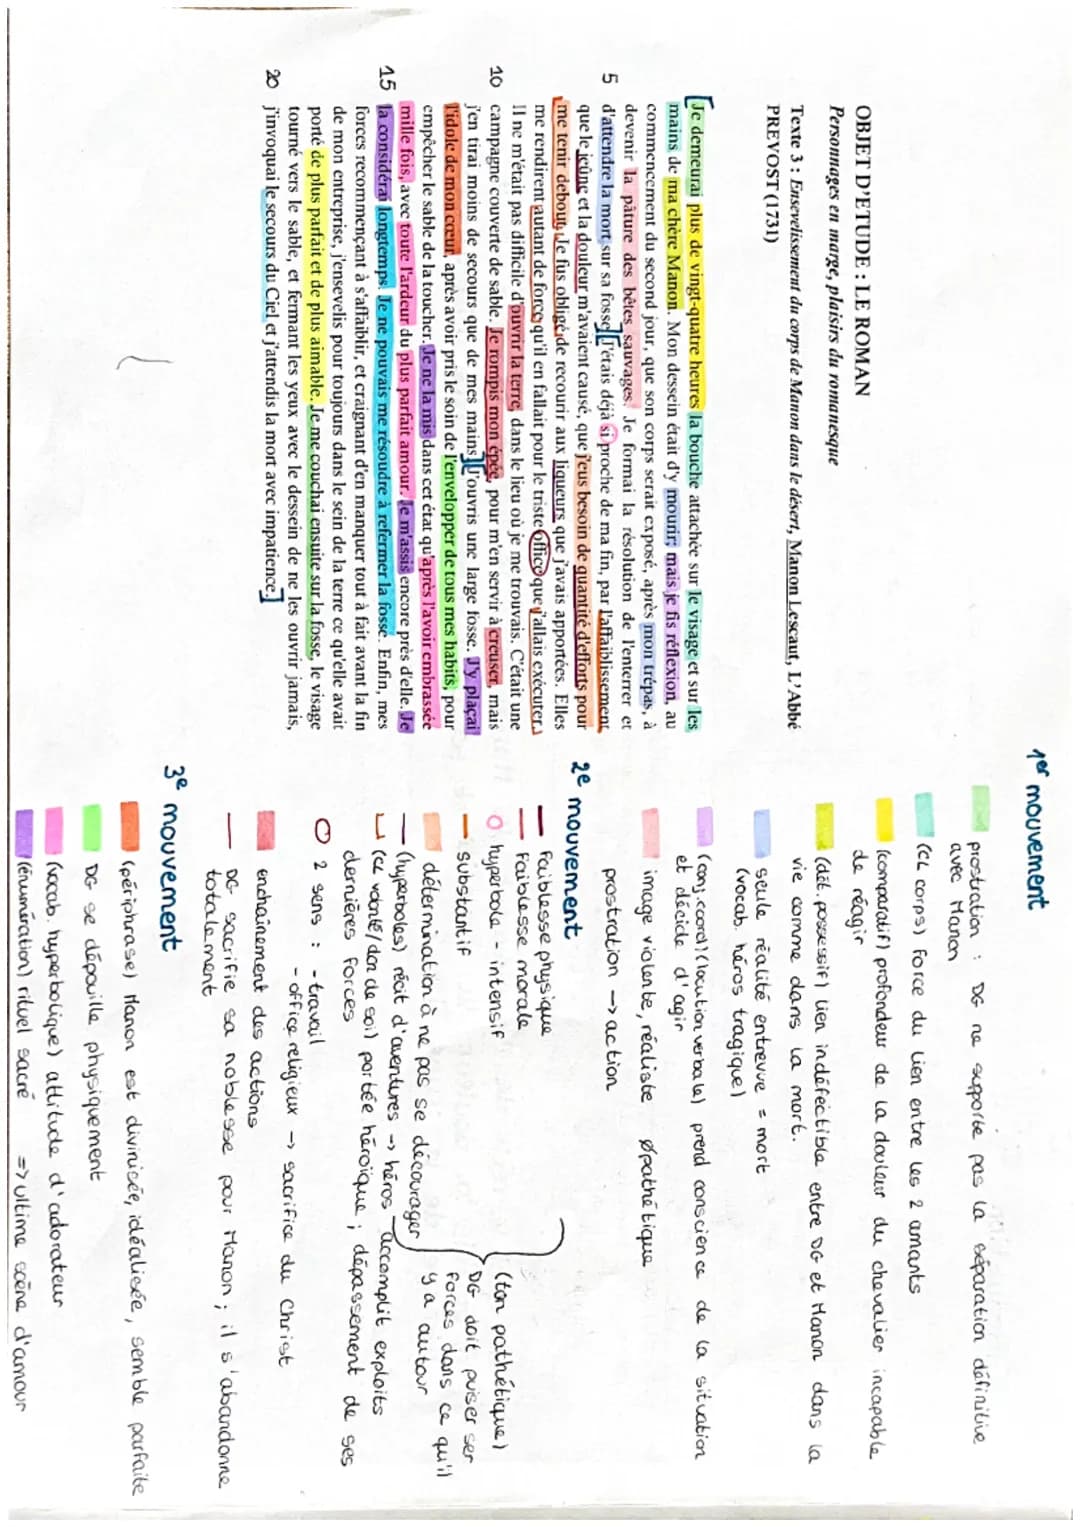 OBJET D'ETUDE : LE ROMAN
Personnages en marge, plaisirs du romanesque
Texte 3 : Ensevelissement du corps de Manon dans le désert, Manon Lescaut, L'Abbé
PREVOST (1731)
[Je demeurai plus de vingt-quatre heures la bouche attachée sur le visage et sur les
mains de ma chère Manon. Mon dessein était d'y mourir; mais je fis réflexion, au
commencement du second jour, que son corps serait exposé, après mon trépas, à
devenir la pâture des bêtes sauvages. Je formai la résolution de l'enterrer et
5 d'attendre la mort sur sa fosse.][J'étais déjà si proche de ma fin, par l'affaiblissement
que le jeûne et la douleur m'avaient causé, que j'eus besoin de quantité d'efforts pour
me tenir debout. Je fus obligé de recourir aux liqueurs que j'avais apportées. Elles
me rendirent autant de force qu'il en fallait pour le triste office que j'allais exécuter.
Il ne m'était pas difficile d'ouvrir la terre, dans le lieu où je me trouvais. C'était une
10 campagne couverte de sable. Je rompis mon épée, pour m'en servir à creuser, mais
j'en tirai moins de secours que de mes mains.][J'ouvris une large fosse. J'y plaçai
l'idole de mon cœur, après avoir pris le soin de l'envelopper de tous mes habits, pour
empêcher le sable de la toucher. Je ne la mis dans cet état qu'après l'avoir embrassée
mille fois, avec toute l'ardeur du plus parfait amour. Je m'assis encore près d'elle. Je
15 la considérai longtemps. Je ne pouvais me résoudre à refermer la fosse. Enfin, mes
forces recommençant à s'affaiblir, et craignant d'en manquer tout à fait avant la fin
de mon entreprise, j'ensevelis pour toujours dans le sein de la terre ce qu'elle avait
porté de plus parfait et de plus aimable. Je me couchai ensuite sur la fosse, le visage
tourné vers le sable, et fermant les yeux avec le dessein de ne les ouvrir jamais,
20 j'invoquai le secours du Ciel et j'attendis la mort avec impatience.]
1er mouvement
prostration : DG ne supporte pas la séparation définitive
avec Manon
(CL corps) Force du lien entre les 2 amants
(comparatif) profondeur de la douleur du chevalier incapable
de réagir
(dét. possessif) lien indéfectible entre DG et Manon dans la
vie comme dans la mort.
seule réalité entrevue = mort
(vocab. héros tragique)
(conj. coord) (locution verbale) prend conscience de la situation
et décide d'agir
image violente, réaliste øpathétique
prostration → action
2e mouvement
Faiblesse physique
Faiblesse morale
hyperbole - intensif
substantif
détermination à ne pas se décourager
(ton pathétique)
DG doit puiser ser
forces dans ce qu'il
y a autour
(hyperboles) récit d'aventures → héros accomplit exploits
(CL volonté/don de soi) portée héroïque ; dépassement de ses
dernières forces
2 sens : - travail
- office religieux → sacrifice du Christ
enchaînement des actions
DG sacrifie sa noblesse pour Manon ; il s'abandonne
totalement
3e mouvement
(périphrase) Manon est divinisée, idéalisée, semble parfaite
DG se dépouille physiquement
(vocab. hyperbolique) attitude d'adorateur
(énumération) rituel sacré => ultime scène d'amour